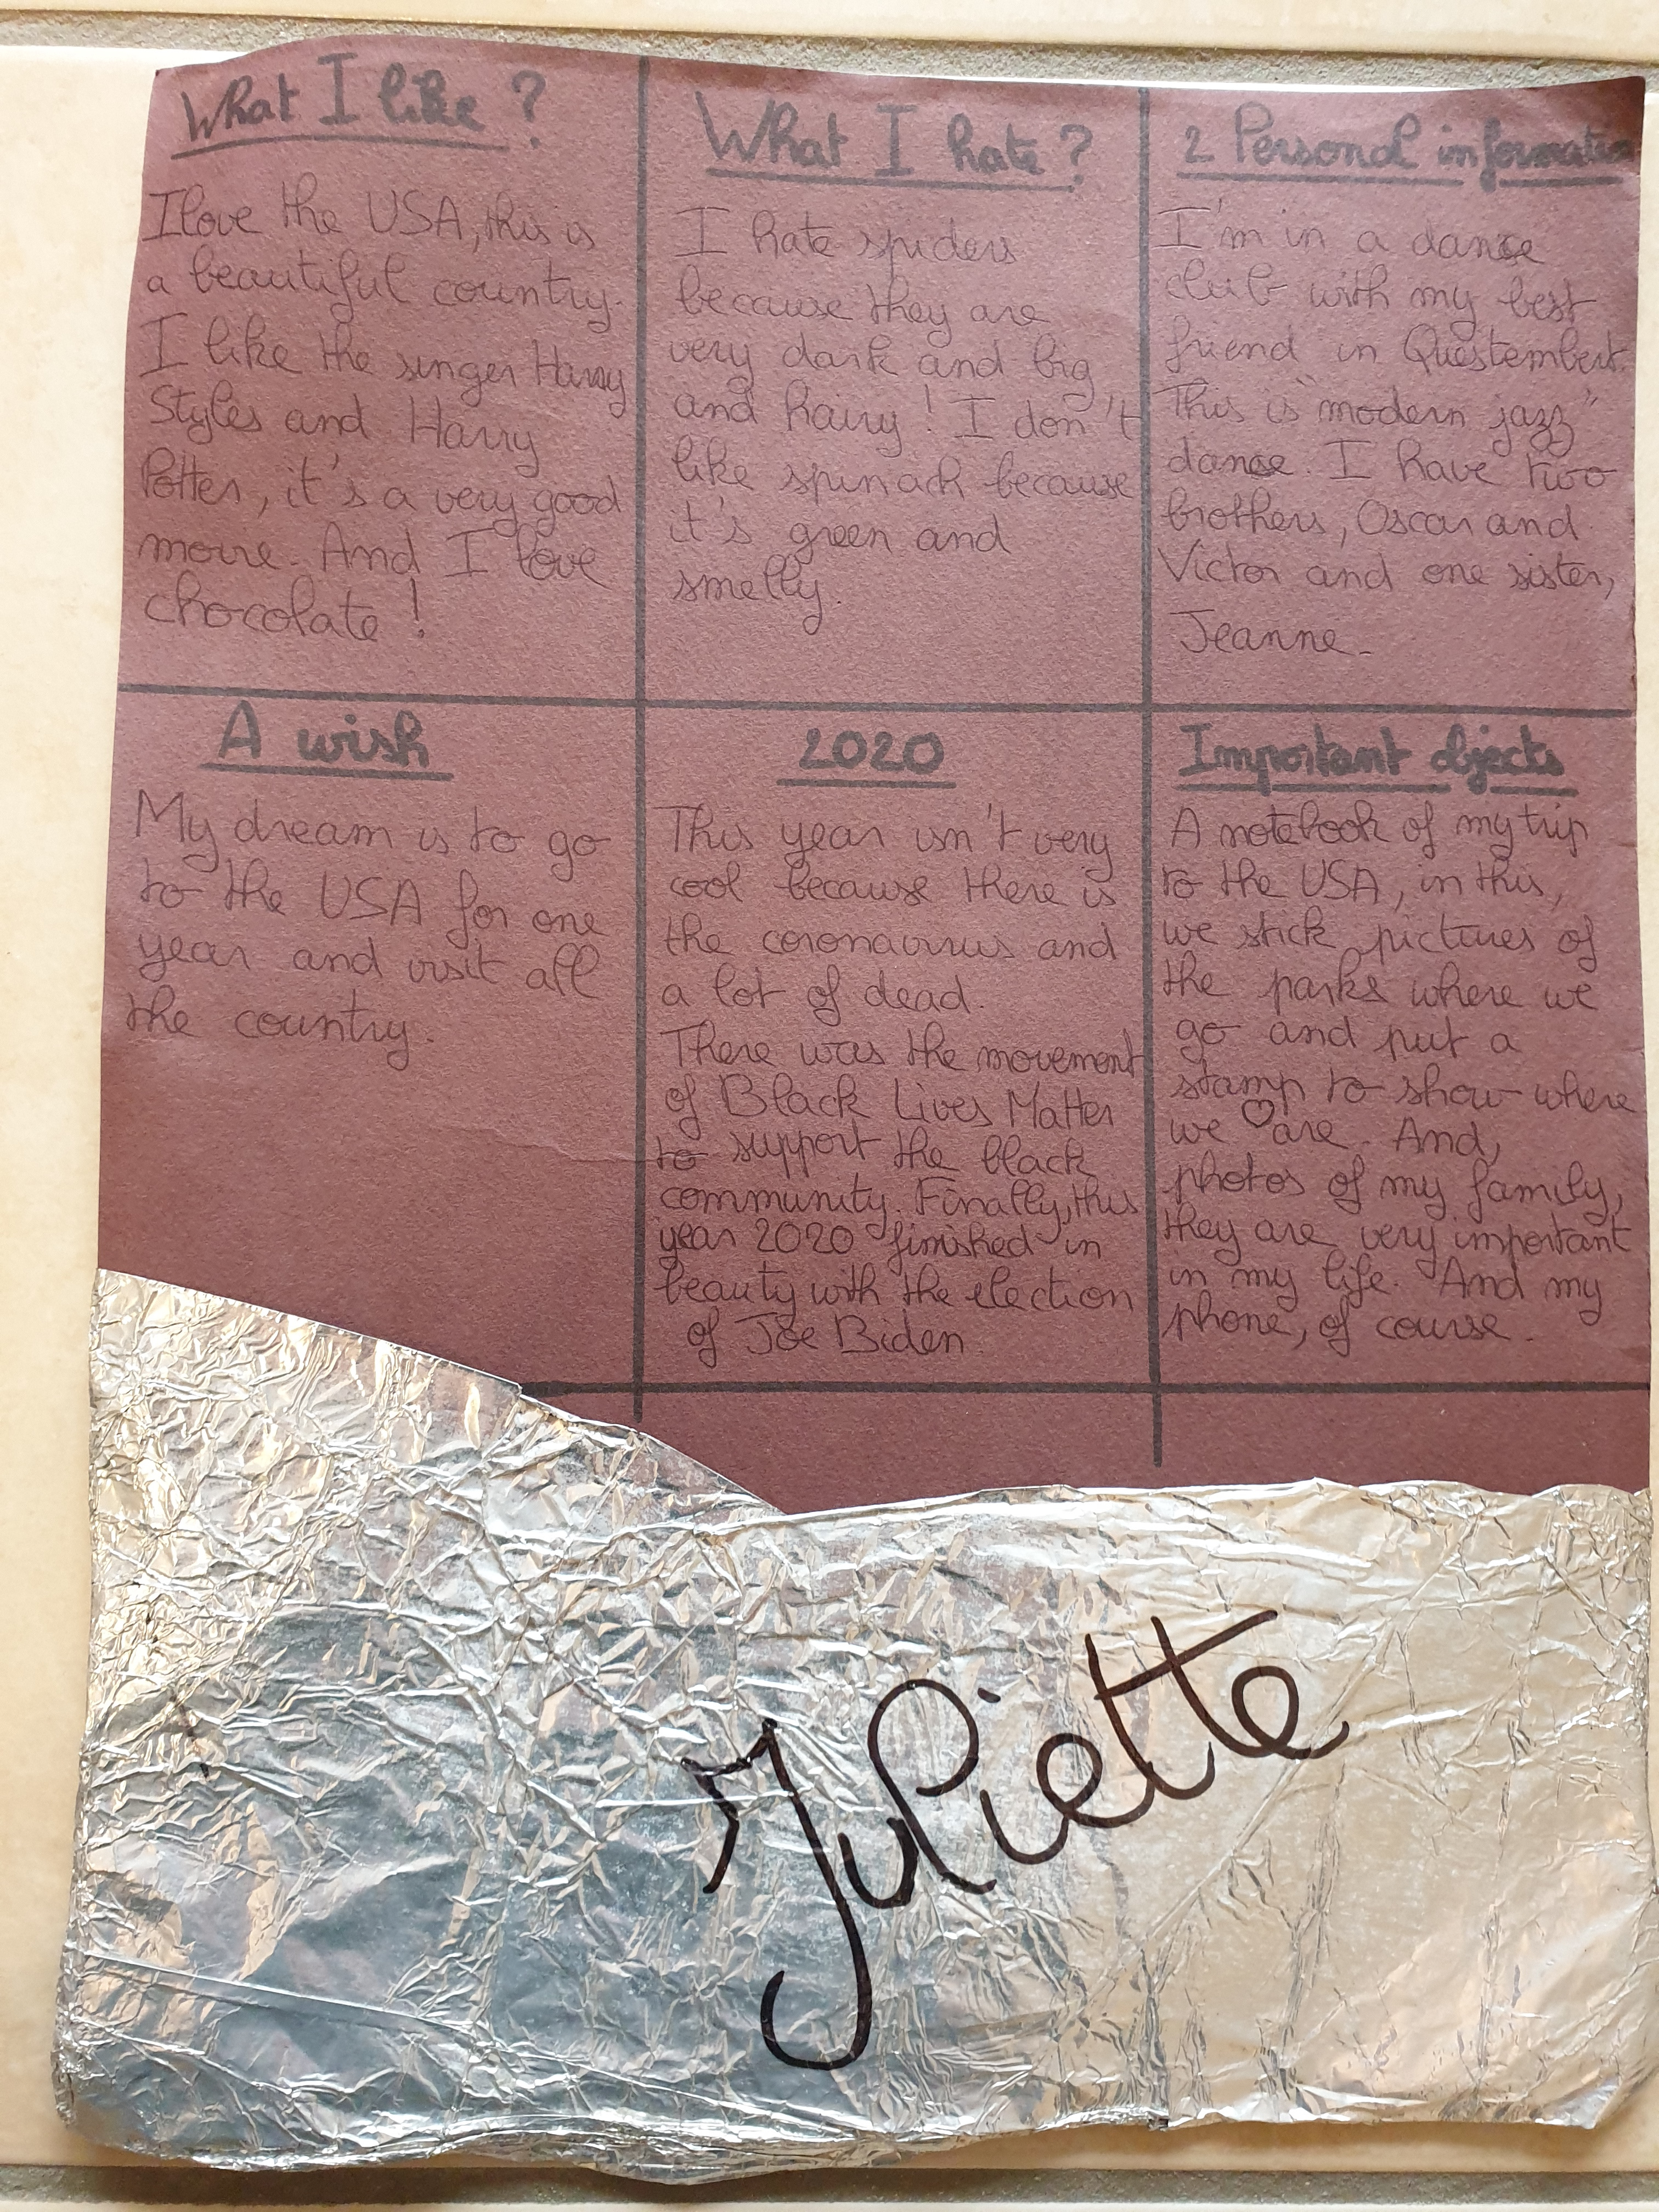 What I like ?
I love the USA, this is
a beautiful country.
I like the singer Harry
Styles and Harry
Potter, it's a very good
movie. And I love
chocolate !
What I hate ?
I hate spiders
because they are
very dark and big
and hairy ! I don't
like spinach because
it's green and
smelly.
2 Personal information
I'm in a dance
club with my best
friend in Questembert.
This is "modern jazz"
dance. I have two
brothers, Oscar and
Victor and one sister,
Jeanne.
A wish
My dream is to go
to the USA for one
year and visit all
the country.
2020
This year isn't very
cool because there is
the coronavirus and
a lot of dead.
There was the movement
of Black Lives Matter
to support the black
community. Finally, this
year 2020 finished in
beauty with the election
of Joe Biden.
Important objects
A notebook of my trip
to the USA, in this,
we stick pictures of
the parks where we
go and put a
stamp to show where
we are. And,
photos of my family,
they are very important
in my life. And my
phone, of course.
Juliette